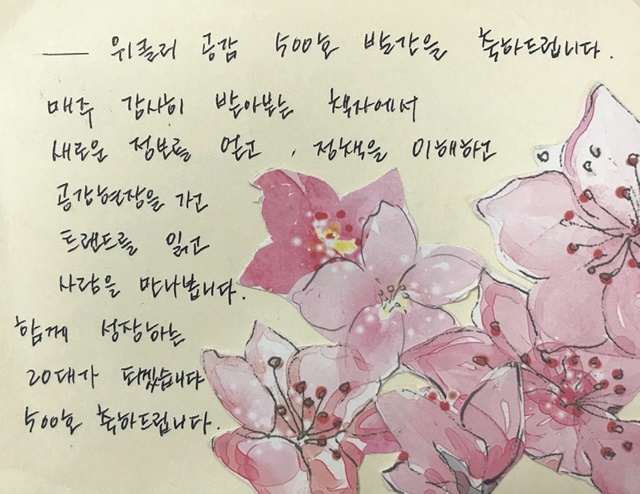 ── 위클리 공감 500호 발간을 축하드립니다.
매주 감사히 받아보는 책자에서
새로운 정보를 얻고, 정책을 이해하고
공감현장을 가고
트랜드를 읽고
사람을 만나봅니다.
함께 성장하는
20대가 되겠습니다
500호 축하드립니다.